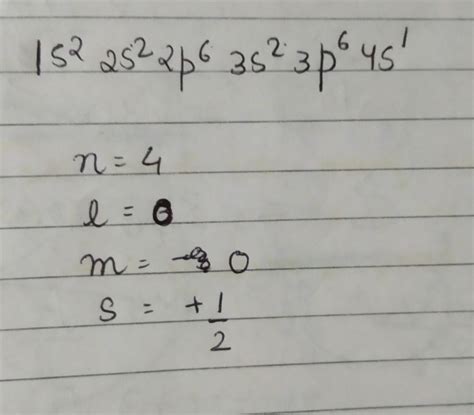 1s² 2s² 2p⁶ 3s² 3p⁶ 4s¹
n = 4
l = 0
m = 0
s = +1/2